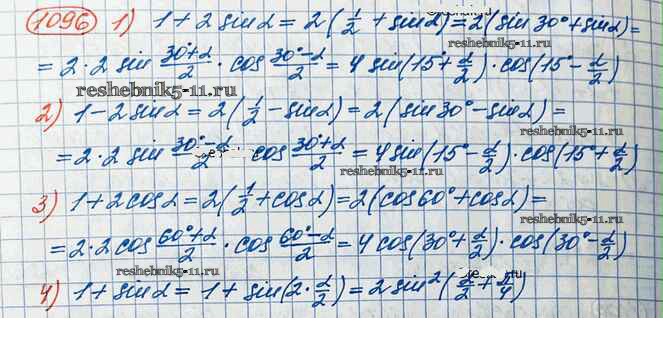 1096 1) 1 + 2 sin α = 2 (1/2 + sin α) = 2 (sin 30° + sin α) =
= 2·2 sin (30°+α)/2 · cos (30°-α)/2 = 4 sin(15° + α/2) · cos(15° - α/2)
reshebniki.ru
reshebniki.ru
2) 1 - 2 sin α = 2 (1/2 - sin α) = 2 (sin 30° - sin α) =
= 2·2 sin (30°-α)/2 · cos (30°+α)/2 = 4 sin(15° - α/2) · cos(15° + α/2)
reshebniki.ru
3) 1 + 2 cos α = 2 (1/2 + cos α) = 2 (cos 60° + cos α) =
reshebniki.ru
= 2·2 cos (60°+α)/2 · cos (60°-α)/2 = 4 cos(30° + α/2) · cos(30° - α/2)
reshebniki.ru
4) 1 + sin α = 1 + sin(2 · α/2) = 2 sin² (α/2 + π/4)